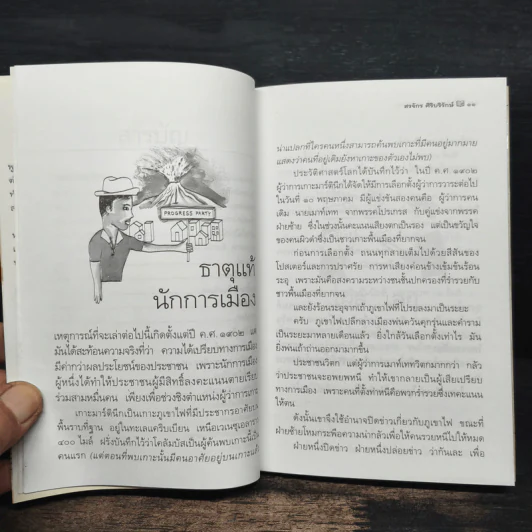 PROGRESS PARTY
ธาตุแท้
นักการเมือง
เหตุการณ์ที่จะเล่าต่อไปนี้เกิดตั้งแต่ปี ค.ศ. ๑๙๐๒ แต่
มันได้สะท้อนความจริงที่ว่า ความได้เปรียบทางการเมือง
มีค่ากว่าผลประโยชน์ของประชาชน เพราะนักการเมือง
ผู้หนึ่งได้ทำให้ประชาชนผู้มีสิทธิ์ลงคะแนนตายเรียบ
ร่วมสามหมื่นคน เพียงเพื่อช่วงชิงตำแหน่งผู้ว่าการเกาะ
เกาะมาร์ตินีกเป็นเกาะภูเขาไฟที่มีประชากรอาศัย
พื้นราบที่ฐาน อยู่ในทะเลแคริบเบียน เหนือเวเนซุเอลา
๔๐๐ ไมล์ ฝรั่งบันทึกไว้ว่าโคลัมบัสเป็นผู้ค้นพบเกาะนี้เป็น
คนแรก (แต่ตอนที่พบเกาะนั้นมีคนอาศัยอยู่บนเกาะแล้ว
สรจักร ศิริบริรักษ์ ๑๑
น่าแปลกที่ใครคนหนึ่งสามารถค้นพบเกาะที่มีคนอยู่มากมาย
แสดงว่าคนที่อยู่เดิมยังหาเกาะของตัวเองไม่พบ)
ประวัติศาสตร์โลกได้บันทึกไว้ว่า ในปี ค.ศ. ๑๙๐๒
ผู้ว่าการเกาะมาร์ตินีกได้จัดให้มีการเลือกตั้งผู้ว่าการวาระต่อไป
ในวันที่ ๑๐ พฤษภาคม มีผู้แข่งขันสองคนคือ ผู้ว่าการคน
เดิม นายเมาท์เทท จากพรรคโปรเกรส กับคู่แข่งจากพรรค
ฝ่ายซ้าย ซึ่งในช่วงนั้นคะแนนเสียงตกเป็นรอง แต่เป็นขวัญใจ
ของคนผิวดำซึ่งเป็นชาวเกาะพื้นเมืองที่ยากจน
ก่อนการเลือกตั้ง ถนนทุกสายเต็มไปด้วยสีสันของ
โปสเตอร์และการปราศรัย การหาเสียงค่อนข้างเข้มข้นร้อน
ระอุ เพราะมันคือสงครามระหว่างชนชั้นปกครองที่ร่ำรวยกับ
ชาวพื้นเมืองที่ยากจน
และยังร้อนระอุจากเถ้าภูเขาไฟที่โปรยลงมาเป็นระยะ
ครับ ภูเขาไฟเปลีกลางเมืองพ่นควันคุกรุ่นและคำราม
เป็นระยะมาหลายเดือนแล้ว ยิ่งใกล้วันเลือกตั้งเท่าไร มัน
ยิ่งพ่นเถ้าถ่านออกมามากขึ้น
ประชาชนวิตก แต่ผู้ว่าการเมาท์เททวิตกมากกว่า กลัว
ว่าประชาชนจะอพยพหนี ทำให้เขากลายเป็นผู้เสียเปรียบ
ทางการเมือง เพราะคนที่ตั้งท่าหนีคือพวกร่ำรวยซึ่งเทคะแนน
ให้ตน
ดังนั้นเขาจึงใช้อำนาจปิดข่าวเกี่ยวกับภูเขาไฟ ขณะที่
ฝ่ายซ้ายโหมกระพือความน่ากลัวเพื่อให้คนรวยหนีไปให้หมด
ฝ่ายหนึ่งปิดข่าว ฝ่ายหนึ่งปล่อยข่าว ว่ากันเละ เพื่อ